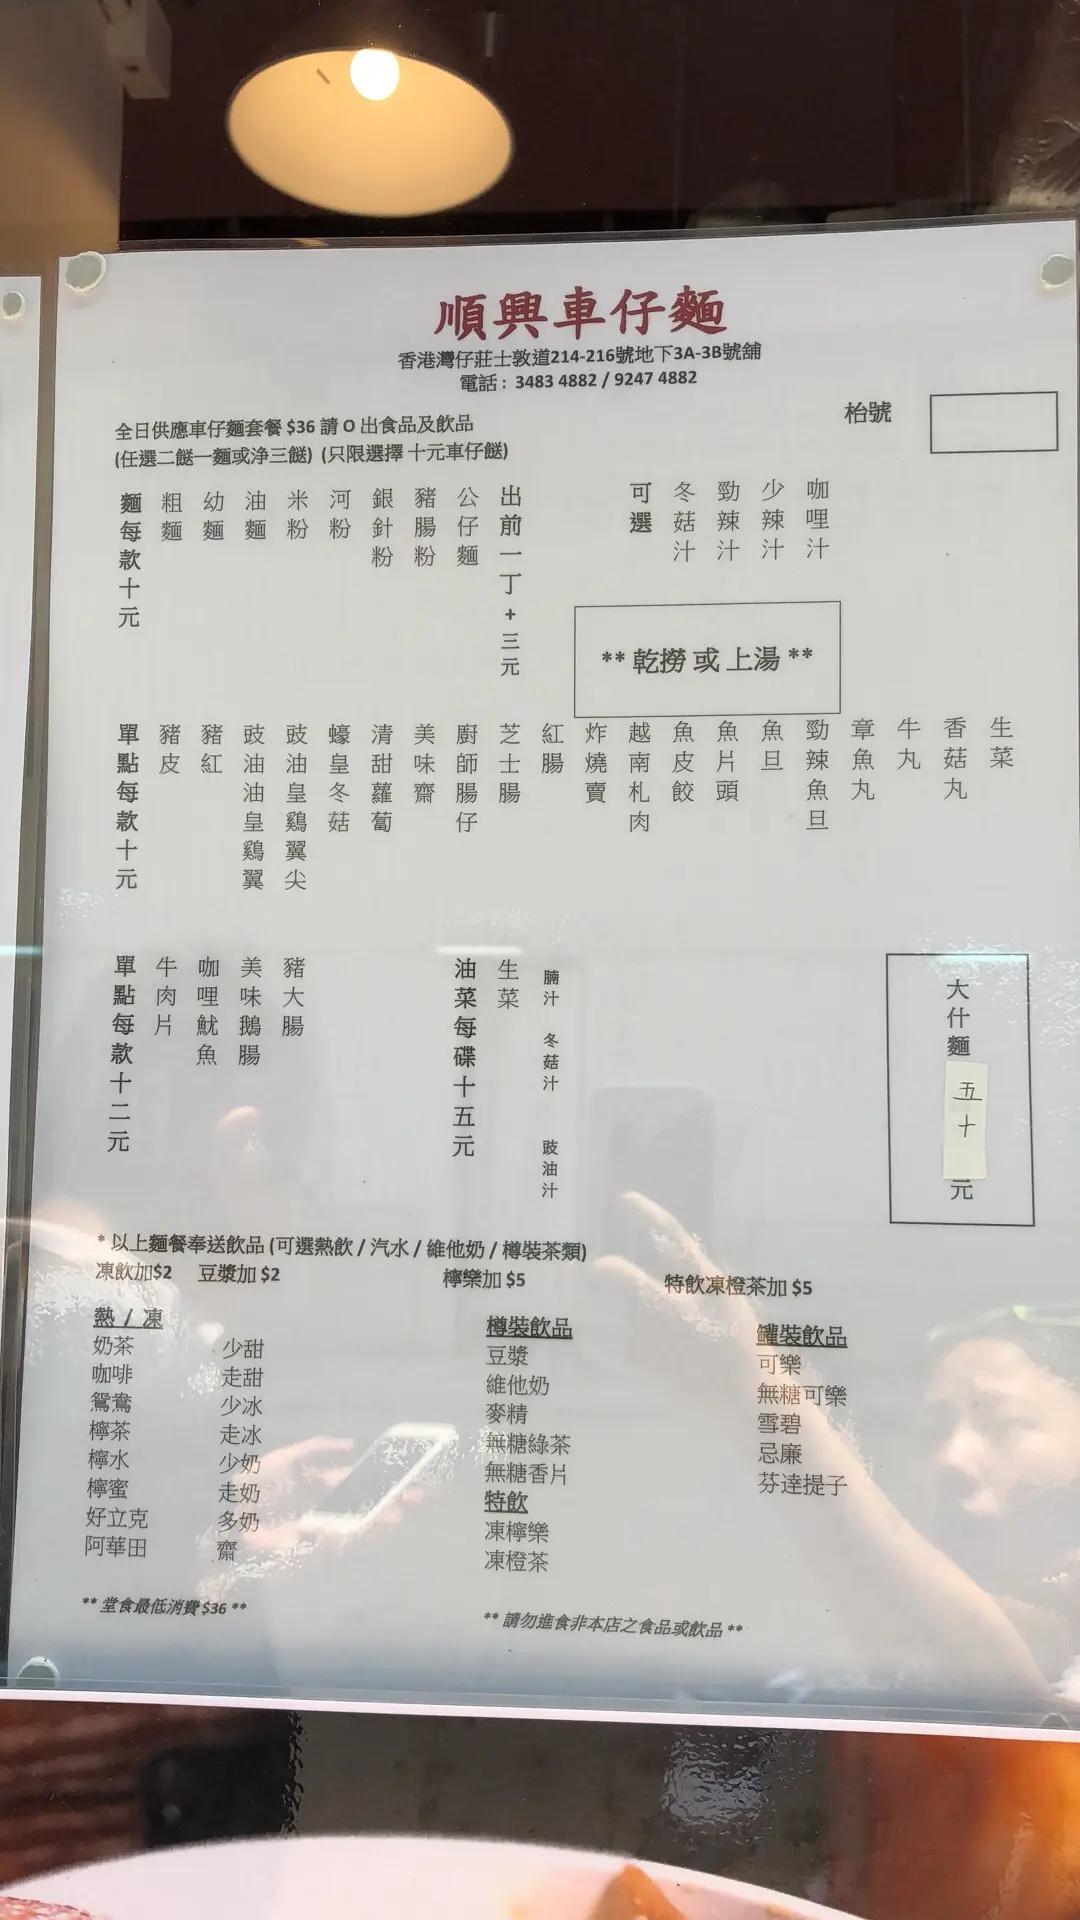 順興車仔麵
香港灣仔莊士敦道214-216號地下3A-3B號舖
電話 : 3483 4882 / 9247 4882
枱號
全日供應車仔麵套餐 $36 請 O 出食品及飲品
(任選二餸一麵或淨三餸) (只限選擇 十元車仔餸)
麵每款十元
粗麵
幼麵
油麵
米粉
河粉
銀針粉
豬腸粉
公仔麵
出前一丁+三元
可選
冬菇汁
勁辣汁
少辣汁
咖哩汁
** 乾撈 或 上湯 **
單點每款十元
豬皮
豬紅
豉油油皇鷄翼
豉油皇鷄翼尖
蠔皇冬菇
清甜蘿蔔
美味齋
廚師腸仔
芝士腸
紅腸
炸燒賣
越南札肉
魚皮餃
魚片頭
魚旦
勁辣魚旦
章魚丸
牛丸
香菇丸
生菜
單點每款十二元
牛肉片
咖哩魷魚
美味鵝腸
豬大腸
油菜每碟十五元
生菜
腩汁
冬菇汁
豉油汁
大什麵五十元
* 以上麵餐奉送飲品 (可選熱飲 / 汽水 / 維他奶 / 樽裝茶類)
凍飲加$2 豆漿加 $2 檸樂加 $5 特飲凍橙茶加 $5
熱 / 凍
奶茶
咖啡
鴛鴦
檸茶
檸水
檸蜜
好立克
阿華田
少甜
走甜
少冰
走冰
少奶
走奶
多奶
齋
樽裝飲品
豆漿
維他奶
麥精
無糖綠茶
無糖香片
特飲
凍檸樂
凍橙茶
罐裝飲品
可樂
無糖可樂
雪碧
忌廉
芬達提子
** 堂食最低消費 $36 **
** 請勿進食非本店之食品或飲品 **